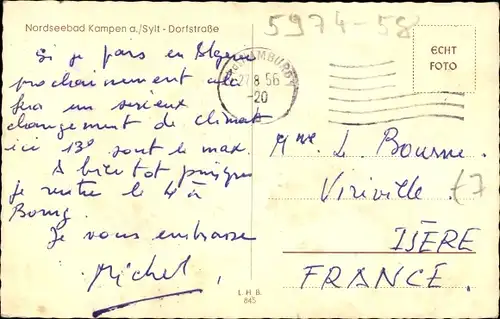 Nordseebad Kampen a./Sylt - Dorfstraße
5974-58
ECHT
FOTO
HAMBURG
27.8.56
-20
Si je pars en Algérie
prochainement cela
fera un sérieux
changement de climat
ici 13° sont le max.
A bientôt puisque
je rentre le 4 à
Bourg.
Je vous embrasse
Michel,
Mme L. Bourne
Viriville.
£7
ISÈRE
FRANCE.
L. H. B.
845